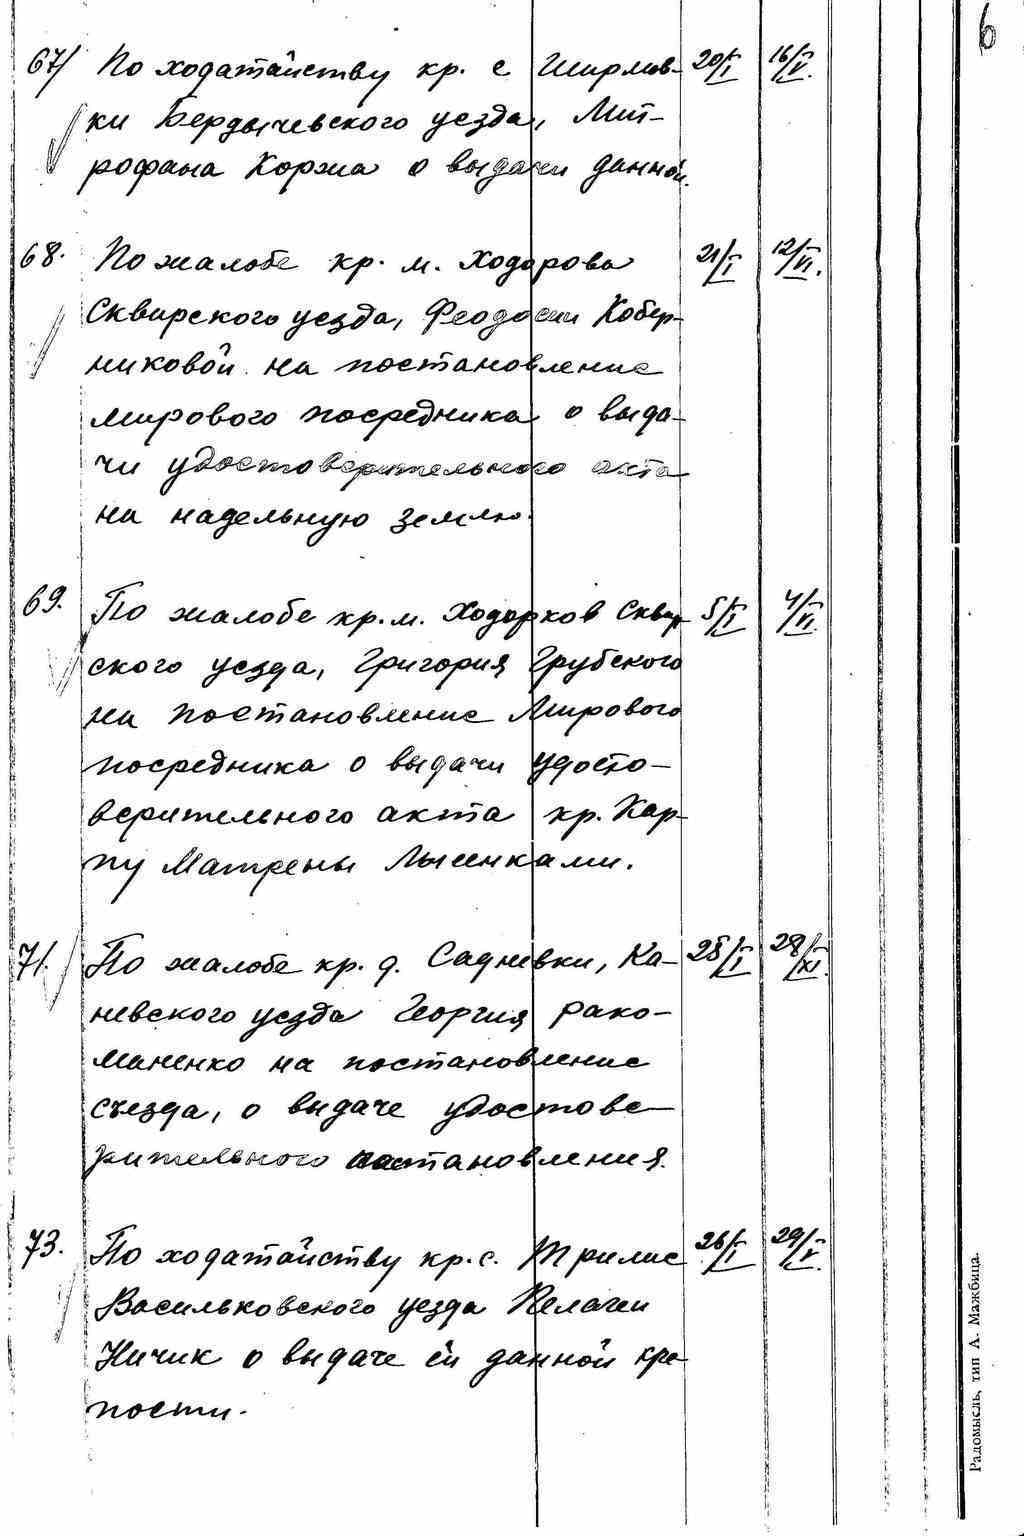 6
67/ По ходатайству кр. с Ширмов- 20/I 16/V.
ки Бердычевского уезда, Мит-
рофана Коржа о выдачи данной.
68. По жалобе кр. м. Ходорова 21/I 12/VI.
Сквирского уезда, Феодосии Кобер-
никовой на постановление
мирового посредника о выда-
чи удостоверительного акта
на надельную землю.
69. По жалобе кр. м. Ходорков Сквир 5/I 4/VI.
ского уезда, Григория Грубского
на постановление Мирового
посредника о выдачи удосто-
верительного акта кр. Кар-
пу Матрены Лысенками.
71. По жалобе кр. д. Саднивки, Ка- 25/I 28/XI.
невского уезда Георгия Рако-
маненко на постановление
съезда, о выдаче удостове-
рительного постановления.
73. По ходатайству кр. с. Трилис 26/I 29/V.
Васильковского уезда Пелагеи
Ничик о выдаче ей данной кре-
пости.
Радомысль, тип А. Мажбица.